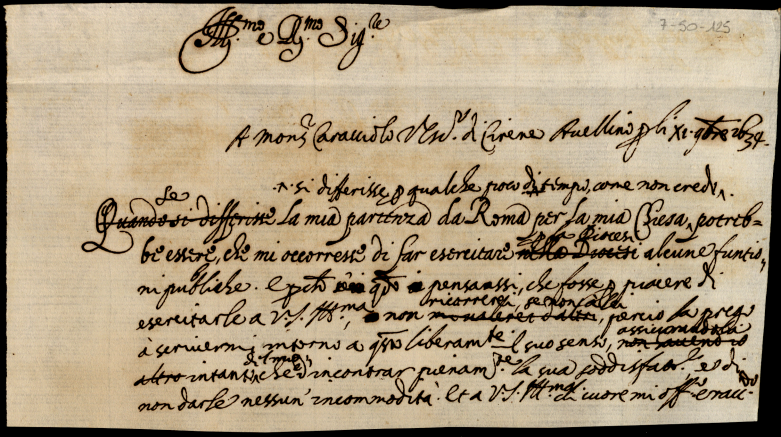 7-50-125
Ill.mo e R.mo Sig.re
A Mons.r Caracciolo Vesc.o di Cirene Avellino p li XI. 9bre 1634.
si differisse p qualche poco di tempo, come non credo,
Se
Quando si differisse la mia partenza da Roma per la mia Chiesa, potreb-
p la Diocesi
be essere, che mi occorresse di far esercitare nella Diocesi alcune funtio
ni publiche. E p.che io pensassi, che fosse p piacere di
ricorrerei, se non a lei
esercitarle a V.S. Ill.ma, non, perciò la prego
assicurandola
à scrivermi intorno a q.sto liberam.te il suo senso, non havend'io
altro intento, che d'incontrar pienam.te la sua soddisfatt.e, e di
non darle nessun' incommodità. Et a V.S. Ill.ma di cuore mi off.o e racc.do